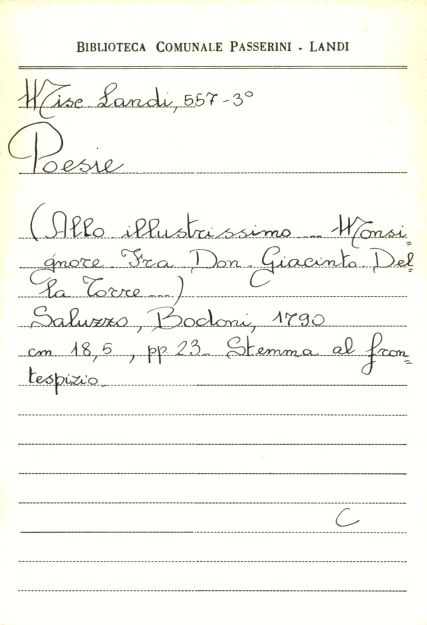 BIBLIOTECA COMUNALE PASSERINI - LANDI
Misc. Landi, 557-3°
Poesie
(Allo illustrissimo ... Monsi=
gnore Fra Don Giacinto Del=
la Torre ...)
Saluzzo, Bodoni, 1790
cm 18,5, pp 23. Stemma al fron=
tespizio.
C